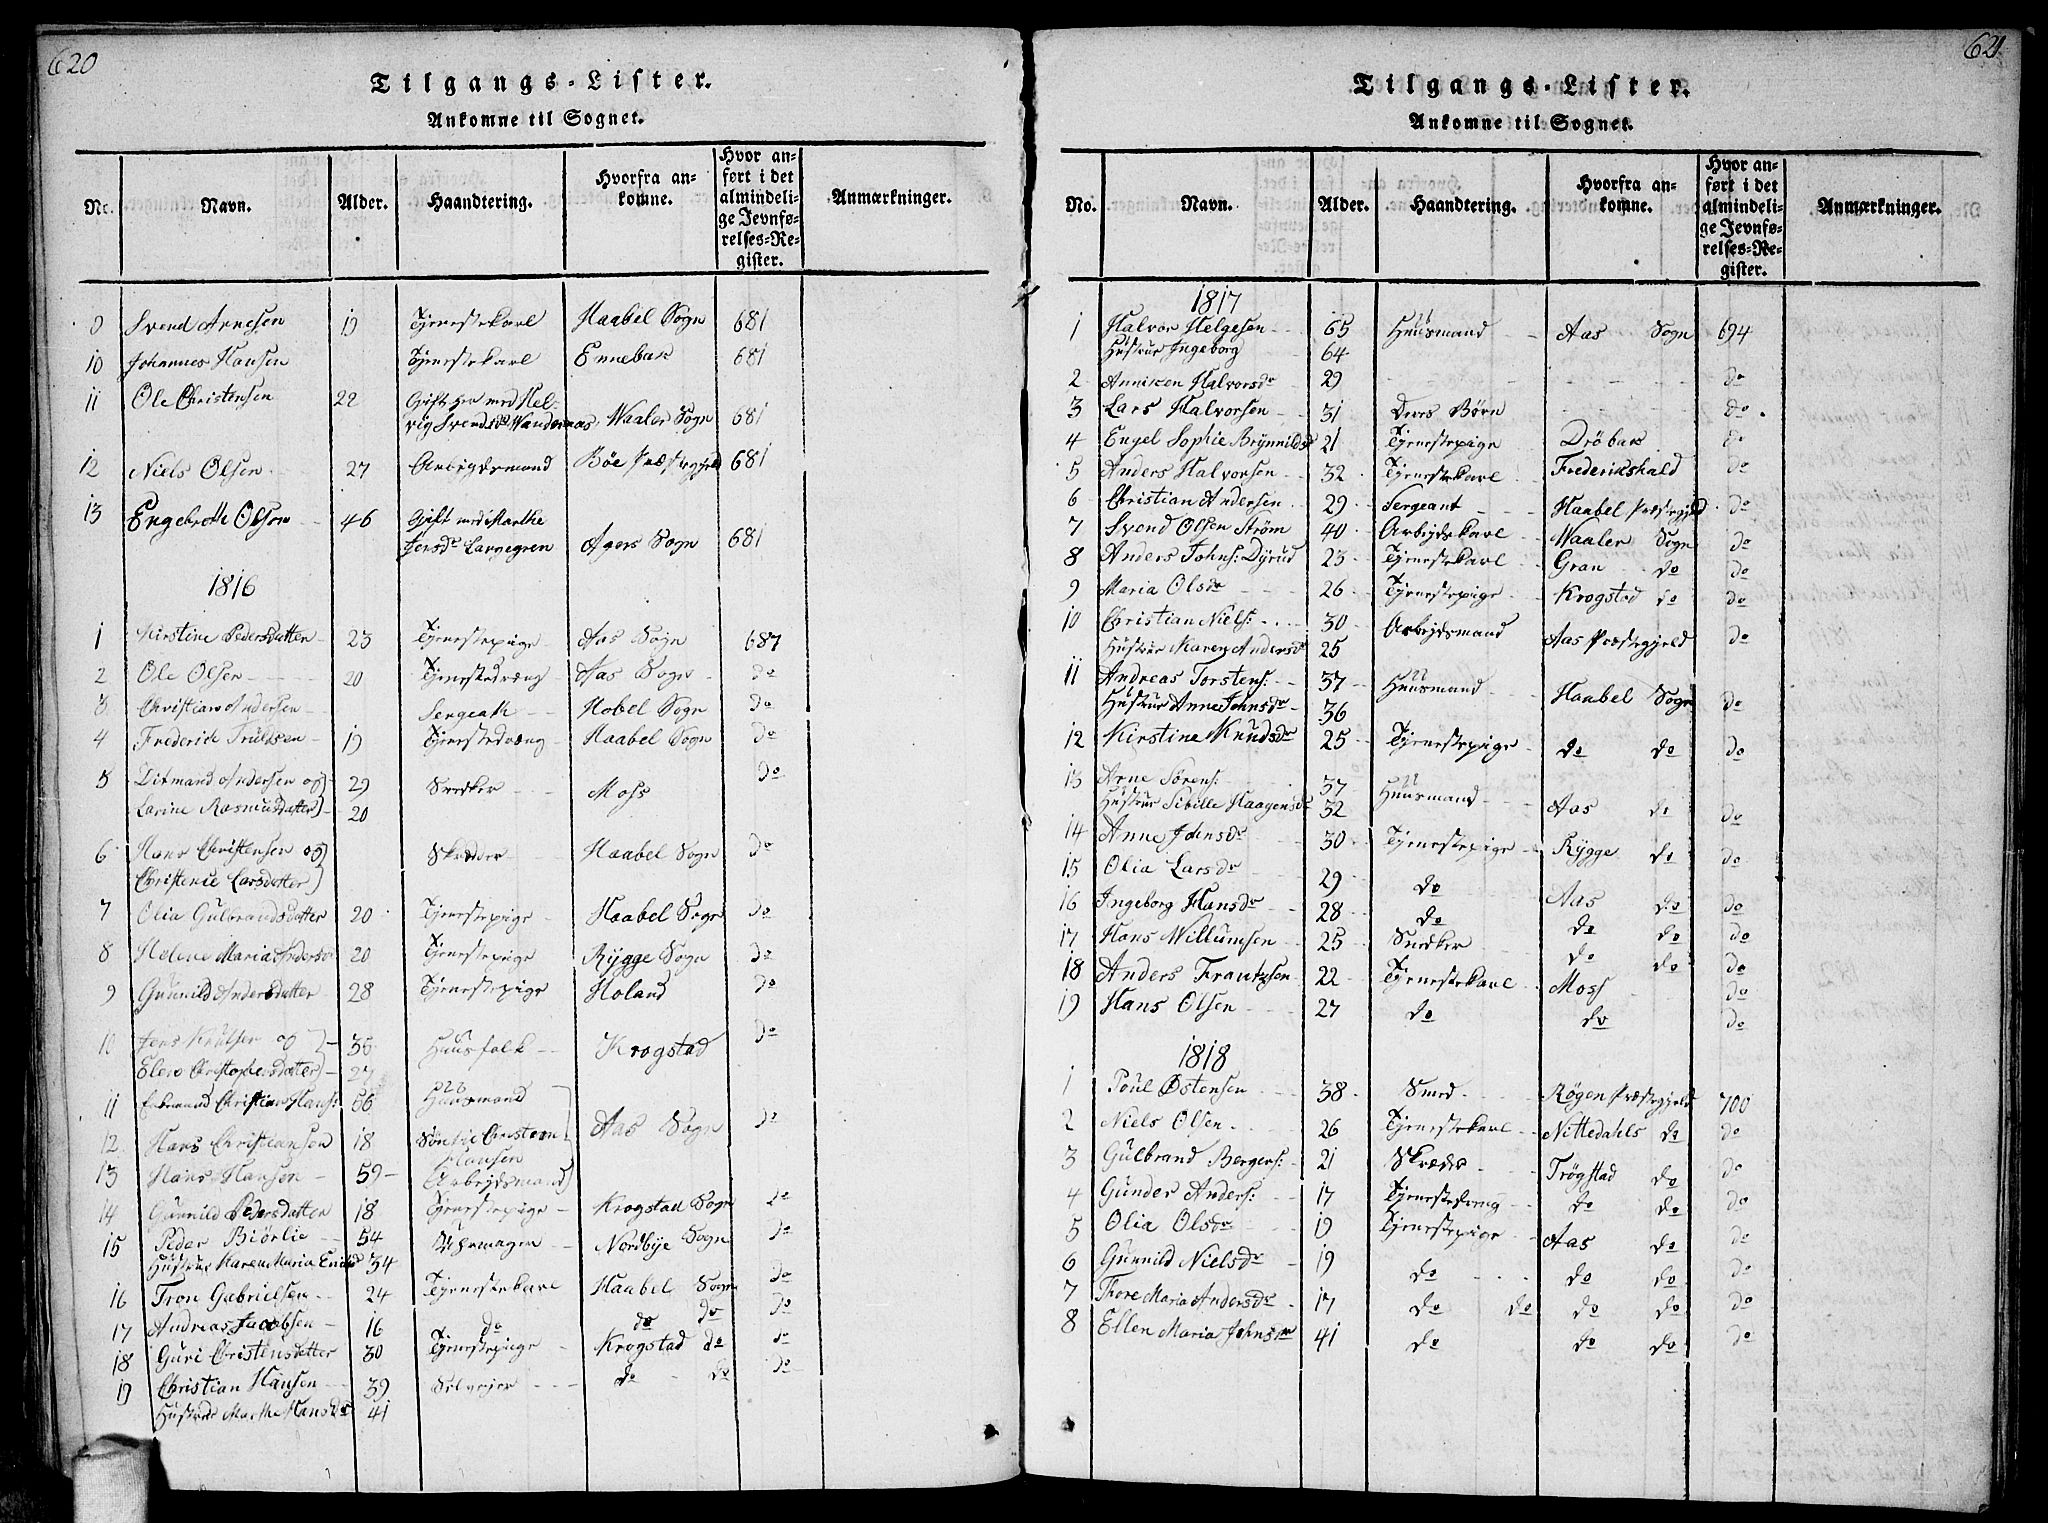 620
Tilgangs-Lister.
Ankomne til Sognet.
No. Navn. Alder. Haandtering. Hvorfra ankomne. Hvor anført i det almindelige Jevnførelses-Register. Anmærkninger.
9 Svend Arnesen 19 Tjenestekarl Haabel Sogn 681
10 Johannes Hansen Tjenestekarl Ennebak 681
11 Ole Christensen 22 Gift her med Hel-
vig Svendsdr Wandernaas Waaler Sogn 681
12 Niels Olsen 27 Arbejdsmand Böe Præstegjeld 681
13 Engebrett Olsen 46 Gift med Marthe
Jensdr Langegren Agers Sogn 681
1816
1 Kirstine Pedersdatter 23 Tjenestepige Aas Sogn 687
2 Ole Olsen 20 Tjenestedræng Aas Sogn do
3 Christian Andersen Sergeath Hobel Sogn do
4 Frederich Trulsen 19 Tjenestedræng Haabel Sogn do
5 Ditmand Andersen og 29 Snedker Moss do
Larine Rasmusdatter 20
6 Hans Christensen og Skrædder Haabel Sogn do
Christenie Larsdatter
7 Olia Gulbrandsdatter 20 Tjenestepige Haabel Sogn do
8 Helene Maria Andersdr 20 Tjenestepige Rygge Sogn do
9 Gunnild Andersdatter 28 Tjenestepige Holand do
10 Jens Knutsen og 35 Huusfolk Krogstad do
Elen Christophersdatter 27
11 Enkemand Christian Hans: 56 Huusmand
12 Hans Christiansen 18 Søn til Christian Hansen Aas Sogn do
13 Hans Hansen 59 Arbejdsmand
14 Gunnild Pedersdatter 18 Tjenestepige Krogstad Sogn do
15 Peder Biörlie 54 Uhrmager Nordbye Sogn do
Hustrue Karen Maria 54
16 Tron Gabrielsen 24 Tjenestekarl Haabel Sogn do
17 Andreas Jacobsen 16 do do do do
18 Guri Christensdatter 30 Tjenestepige Krogstad do do
19 Christian Hansen 39 Selvejer do do do
Hustrue Marthe Hansdr 41
621
Tilgangs-Lister.
Ankomne til Sognet.
No. Navn. Alder. Haandtering. Hvorfra ankomne. Hvor anført i det almindelige Jevnførelses-Register. Anmærkninger.
1817
1 Halvor Helgesen 65 Huusmand Aas Sogn 694
Hustrue Ingeborg 64
2 Anniken Halvorsdr 29 do
3 Lars Halvorsen 31 Deres Børn do
4 Engel Sophie Brynnildsdr 21 Tjenestepige Dröbak do
5 Anders Halvorsen 32 Tjenestekarl Frederikshald do
6 Christian Andersen 29 Sergeant Haabel Præstegjeld do
7 Svend Olsen Ström 40 Arbejdskarl Waaler Sogn do
8 Anders Johns: Dyrud 23 Tjenestekarl Gran do do
9 Maria Olsdr 26 Tjenestepige Krogstad do do
10 Christian Niels: 30 Arbejdsmand Aas Præstegjeld do
Hustrue Maren Andersdr 25
11 Andreas Torstens: 37 Huusmand Haabel Sogn do
Hustrue Anne Johnsdr 36
12 Kirstine Knudsdr 25 Tjenestepige do do do
13 Arne Sörens: 37 Huusmand Aas do do
Hustrue Sibille Haagensdr 32
14 Anne Johnsdr 30 Tjenestepige Rygge do do
15 Olia Larsdr 29 do Aas do do
16 Ingeborg Hansdr 28 do do do do
17 Hans Willumsen 25 Snedker do do do
18 Anders Frantzsen 22 Tjenestekarl Moss do
19 Hans Olsen 27 do do do
1818
1 Poul Østensen 38 Smed Røgen Præstegjeld 700
2 Niels Olsen 26 Tjenestekarl Nittedahls do do
3 Gulbrand Bergers: 21 Skræder Trøgstad do do
4 Gunder Anders: 17 Tjenestedreng do do do
5 Olia Olsdr 19 Tjenestepige Aas do do
6 Gunnild Nielsdr 19 do do do do
7 Thore Maria Andersdr 17 do do do do do
8 Ellen Maria Johnsdr 41 do do do do